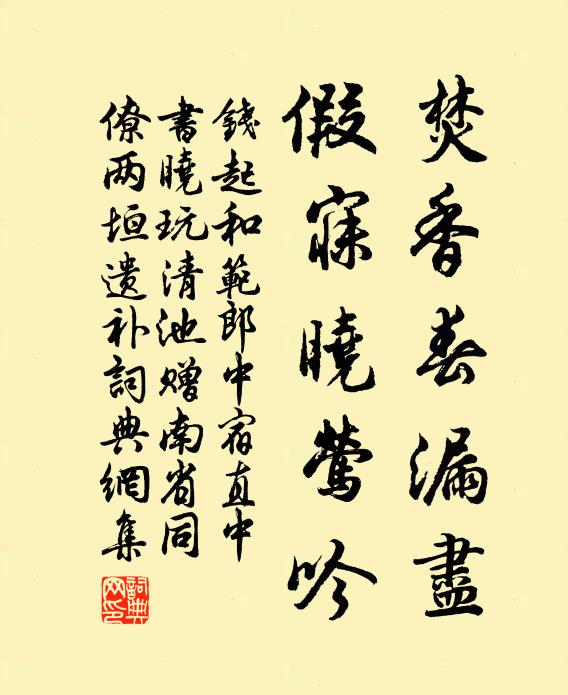 焚香春漏盡
假寐曉鶯吟
錢起和範郎中宿直中
書曉玩清池贈南省同
僚两垣遗补詞典網集
詞典
网印